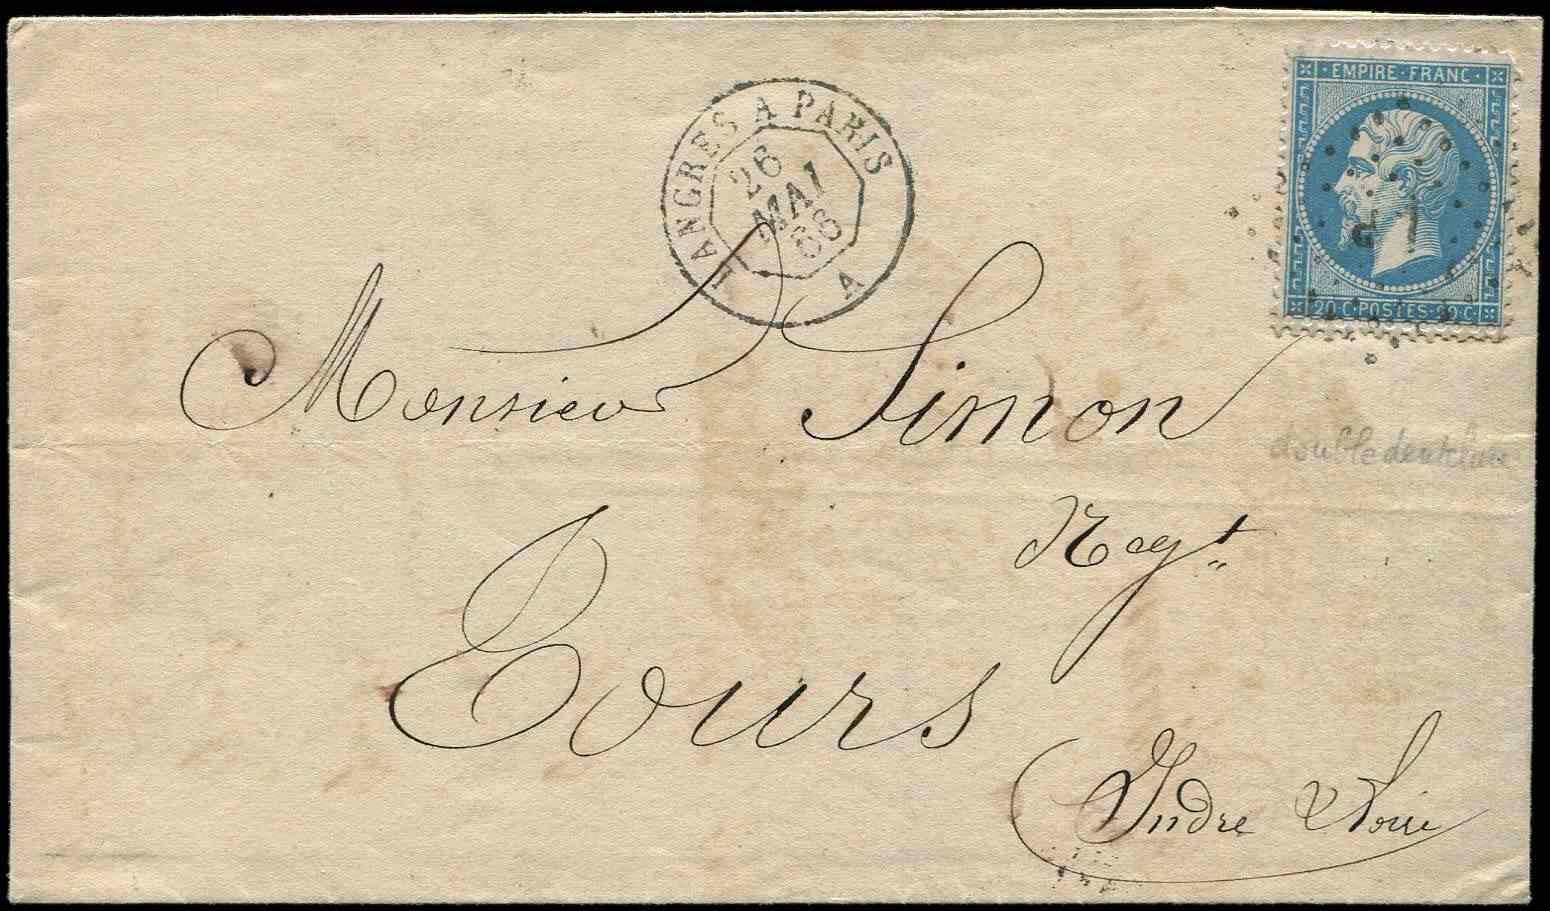 LANGRES A PARIS
26
MAI
66
A
EMPIRE · FRANC ·
20 · C · POSTES · 20 · C ·
Monsieur Simon
double dentelure
Negt
Tours
Indre & Loire